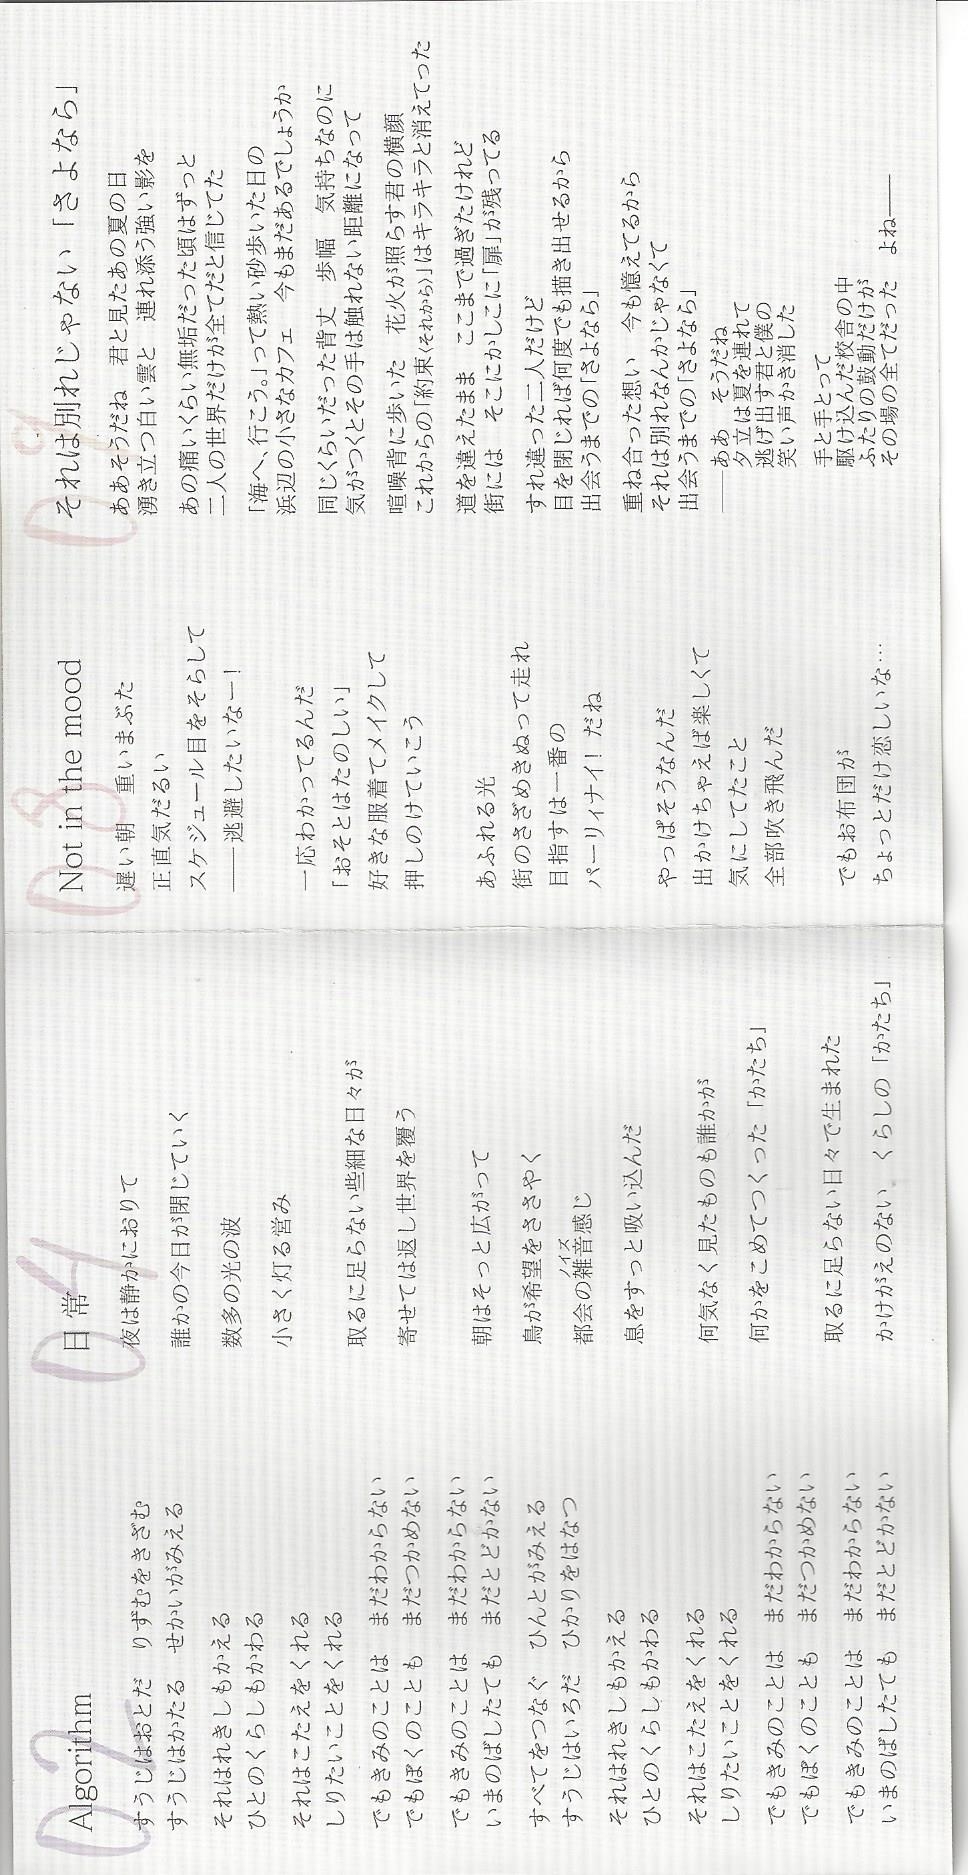 02
Algorithm
すうじはおとだ　りずむをきざむ
すうじはかたる　せかいがみえる
それはれきしもかえる
ひとのくらしもかわる
それはこたえをくれる
しりたいことをくれる
でもきみのことは　まだわからない
でもぼくのことも　まだつかめない
でもきみのことは　まだわからない
いまのばしたても　まだとどかない
すべてをつなぐ　ひんとがみえる
すうじはいろだ　ひかりをはなつ
それはれきしもかえる
ひとのくらしもかわる
それはこたえをくれる
しりたいことをくれる
でもきみのことは　まだわからない
でもぼくのことも　まだつかめない
でもきみのことは　まだわからない
いまのばしたても　まだとどかない
04
日常
夜は静かにおりて
誰かの今日が閉じていく
数多の光の波
小さく灯る営み
取るに足らない些細な日々が
寄せては返し世界を覆う
朝はそっと広がって
鳥が希望をささやく
都会の雑音感じ
ノイズ
息をすっと吸い込んだ
何気なく見たものも誰かが
何かをこめてつくった「かたち」
取るに足らない日々で生まれた
かけがえのない　くらしの「かたち」
08
Not in the mood
遅い朝　重いまぶた
正直気だるい
スケジュール目をそらして
――逃避したいなー！
一応わかってるんだ
「おそとはたのしい」
好きな服着てメイクして
押しのけていこう
あふれる光
街のさざめきぬって走れ
目指すは一番の
パーリィナイ！だね
やっぱそうなんだ
出かけちゃえば楽しくて
気にしてたこと
全部吹き飛んだ
でもお布団が
ちょっとだけ恋しいな…
09
それは別れじゃない「さよなら」
ああそうだね　君と見たあの夏の日
湧き立つ白い雲と　連れ添う強い影を
あの痛いくらい無垢だった頃はずっと
二人の世界だけが全てだと信じてた
「海へ、行こう。」って熱い砂歩いた日の
浜辺の小さなカフェ　今もまだあるでしょうか
同じくらいだった背丈　歩幅　気持ちなのに
気がつくとその手は触れない距離になって
喧噪背に歩いた　花火が照らす君の横顔
これからの「約束〈それから〉」はキラキラと消えてった
道を違えたまま　ここまで過ぎたけれど
街には　そこにかしこに「扉」が残ってる
すれ違った二人だけど
目を閉じれば何度でも描き出せるから
出会うまでの「さよなら」
重ね合った想い　今も憶えてるから
それは別れなんかじゃなくて
出会うまでの「さよなら」
――ああ　そうだね
夕立は夏を連れて
逃げ出す君と僕の
笑い声かき消した
手と手とって
駆け込んだ校舎の中
ふたりの鼓動だけが
その場の全てだった　よね――